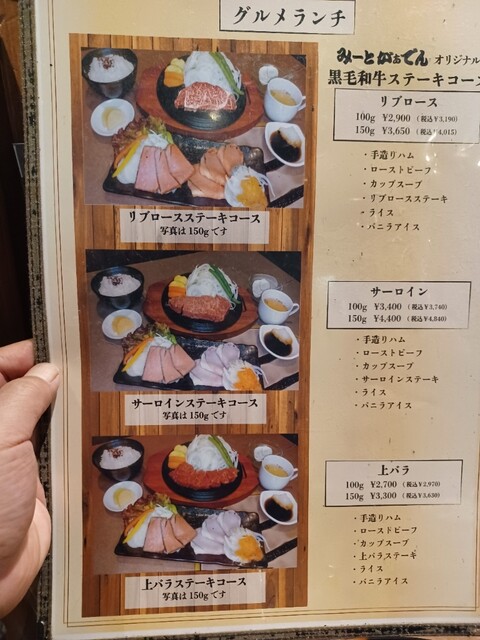 グルメランチ
みーとがぁでん オリジナル
黒毛和牛ステーキコース
リブロース
100g ¥2,900 (税込¥3,190)
150g ¥3,650 (税込¥4,015)
・手造りハム
・ローストビーフ
・カップスープ
・リブロースステーキ
・ライス
・バニラアイス
リブロースステーキコース
写真は150gです
サーロイン
100g ¥3,400 (税込¥3,740)
150g ¥4,400 (税込¥4,840)
・手造りハム
・ローストビーフ
・カップスープ
・サーロインステーキ
・ライス
・バニラアイス
サーロインステーキコース
写真は150gです
上バラ
100g ¥2,700 (税込¥2,970)
150g ¥3,300 (税込¥3,630)
・手造りハム
・ローストビーフ
・カップスープ
・上バラステーキ
・ライス
・バニラアイス
上バラステーキコース
写真は150gです